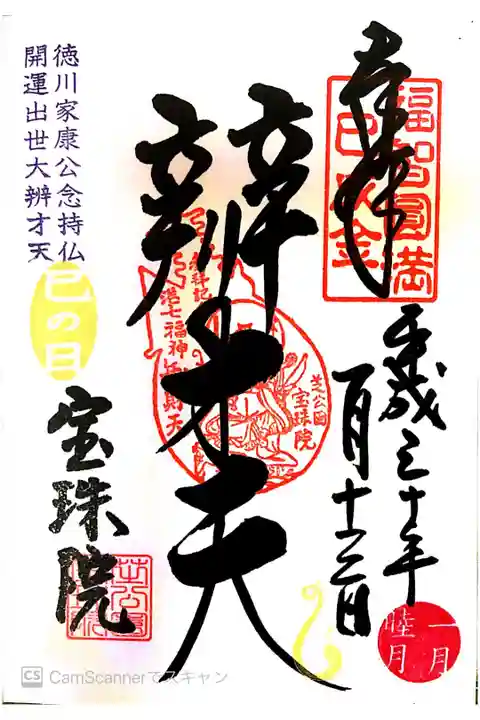 奉拝
福智圓満
巳成金
平成三十年
一月十三日
一月
睦月
辨才天
参拝記
港七福神
弁財天
芝公園
宝珠院
徳川家康公念持仏
開運出世大辨才天
巳の日
宝珠院
CS CamScannerでスキャン